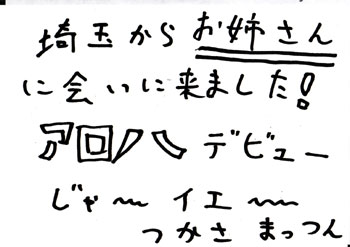 埼玉からお姉さん
に会いに来ました!
アロハデビュー
じゃ〜イエ〜
つかさ まっつん